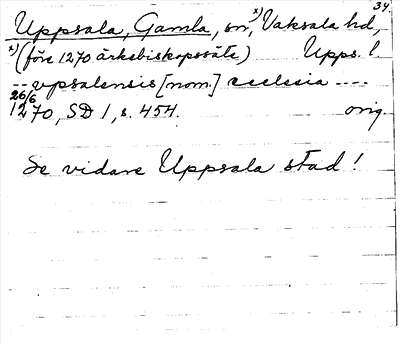 34.
Uppsala, Gamla, sn, x) Vaksala hd,
x) (före 1270 ärkebiskopssäte) Upps. l.
-- vpsalensis [nom.] ecclesia ----
26/6
1270, SD 1, s. 454. orig.
Se vidare Uppsala stad!